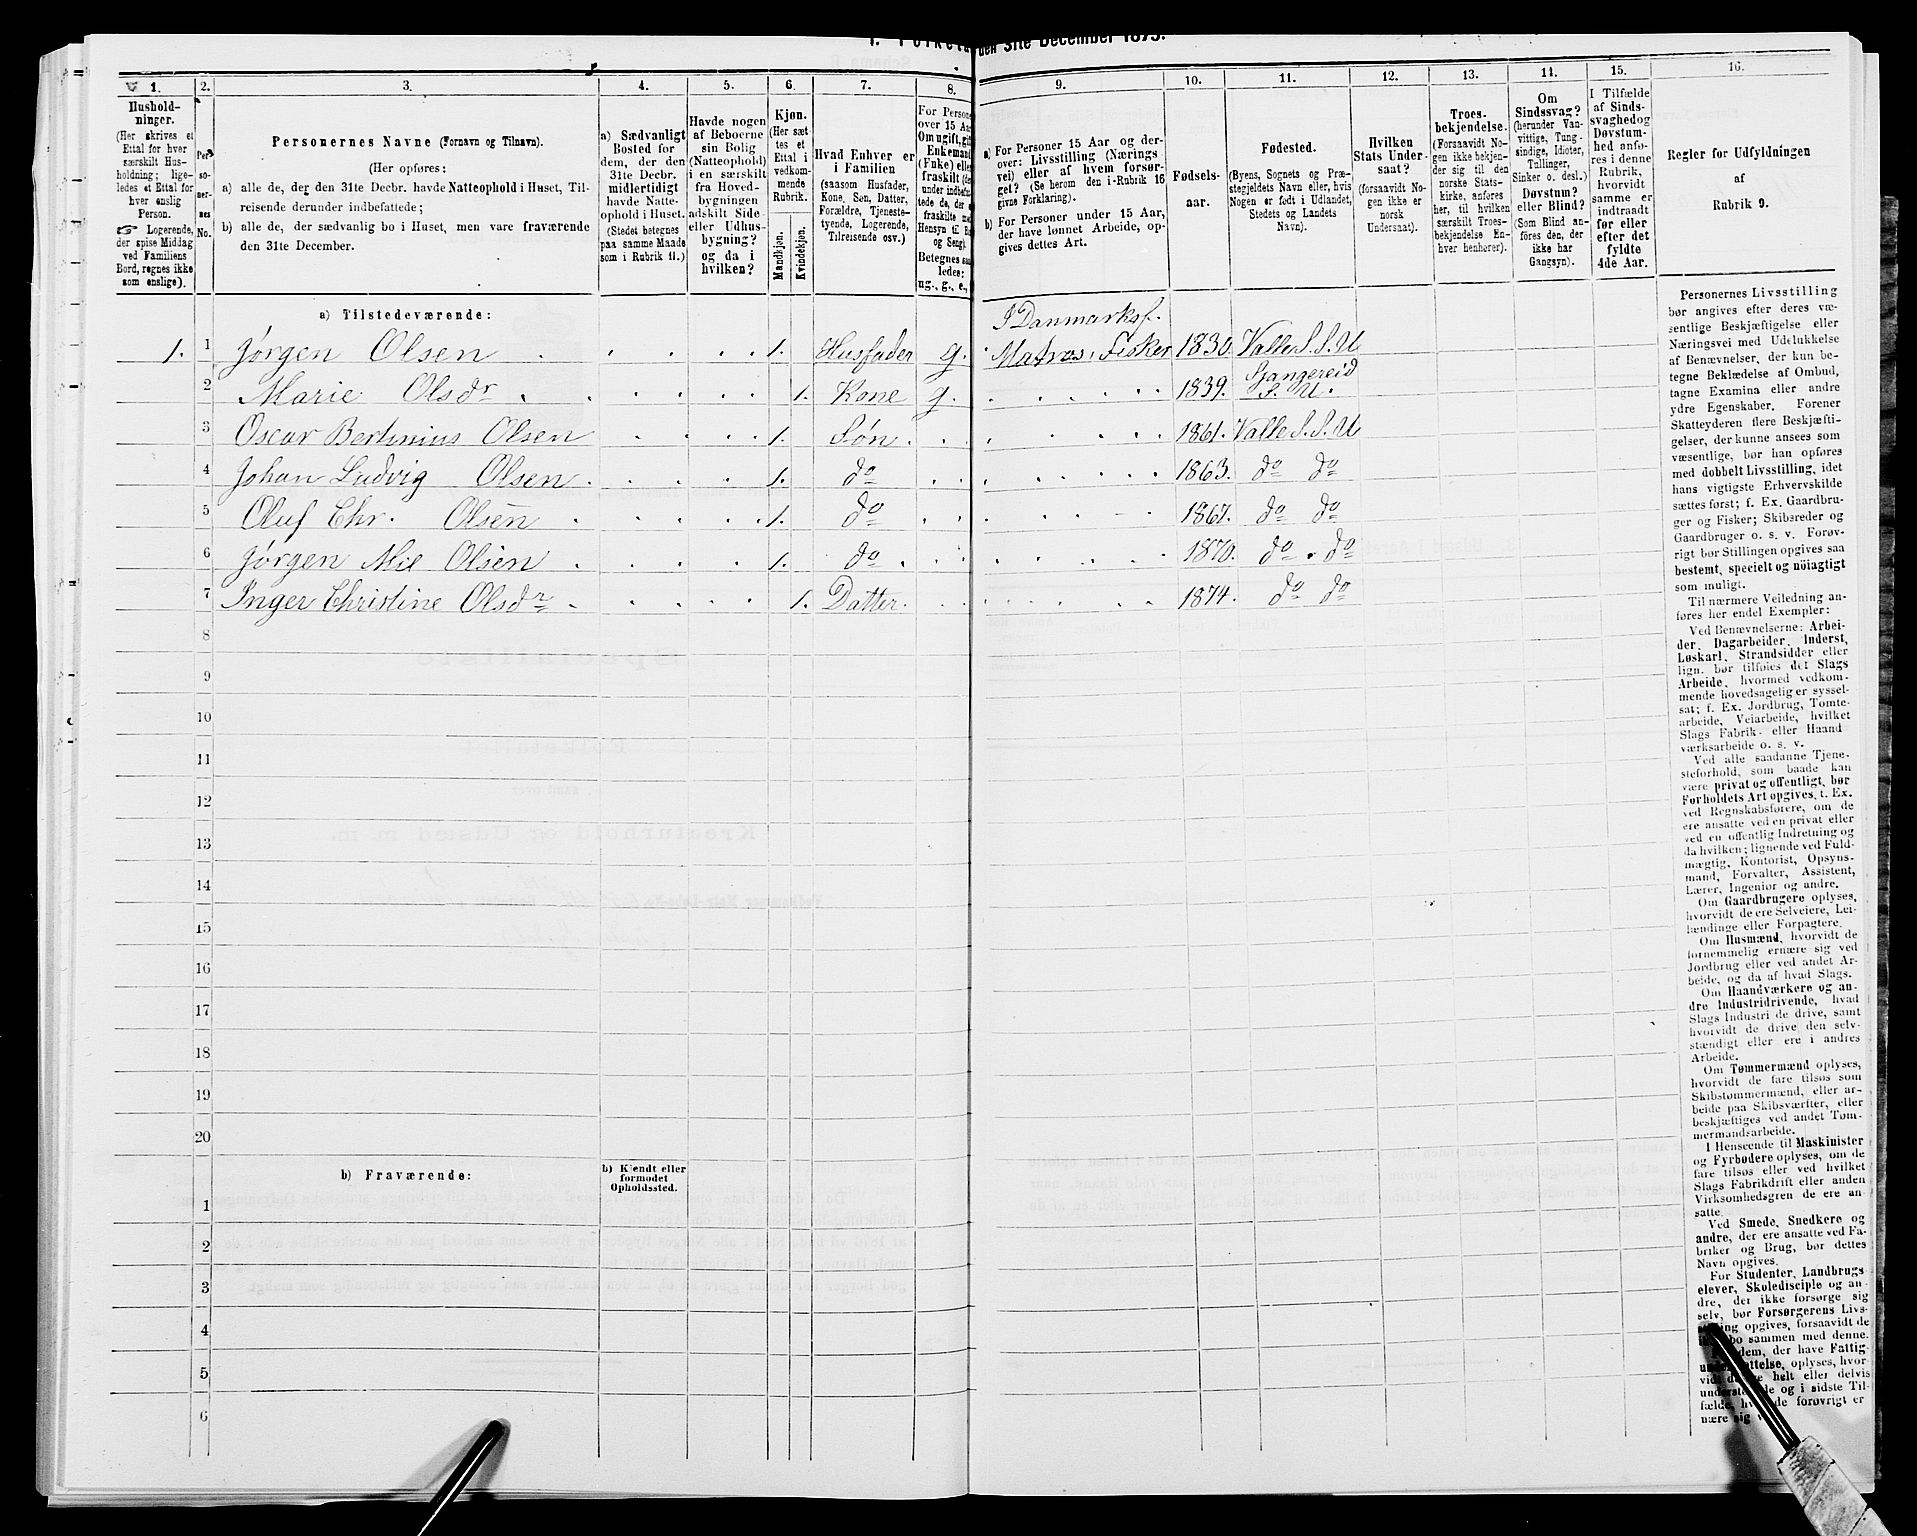 I. Folketal den 31te December 1875.
1. 2. 3. 4. 5. 6. 7. 8. 9. 10. 11. 12. 13. 14. 15. 16.
Hushold-
ninger.
(Her skrives et
Ettal for hver
særskilt Hus-
holdning; lige-
ledes et Ettal for
hver enslig
Person.
☞ Logerende,
der spise Middag
ved Familiens
Bord, regnes ikke
som enslige).
Per
so-
ner-
nes
No.
Personernes Navne (Fornavn og Tilnavn).
(Her opføres:
a) alle de, der den 31te Decbr. havde Natteophold i Huset, Til-
reisende derunder indbefattede;
b) alle de, der sædvanlig bo i Huset, men vare fraværende
den 31te December.
a) Sædvanligt
Bosted for
dem, der den
31te Decbr.
midlertidigt
havde Natte-
ophold i Huset.
(Stedet betegnes
paa samme Maade
som i Rubrik 11.)
Havde nogen
af Beboerne
sin Bolig
(Natteophold)
i en særskilt
fra Hoved-
bygningen
adskilt Side-
eller Udhus-
bygning?
og da i
hvilken?
Kjøn.
(Her sæt-
tes et
Ettal i
vedkom-
mende
Rubrik.
Mandkjøn.
Kvindekjøn.
Hvad Enhver er
i Familien
(saasom Husfader,
Kone, Søn, Datter,
Forældre, Tjeneste-
tyende, Logerende,
Tilreisende osv.)
For Persone
over 15 Aar
Omugift, gift
Enkemand
(Fnke) eller
fraskilt (de
under indbefat-
tede de, der e
fraskilte med
Hensyn til Bo
og Seng).
Betegnes saa
ledes:
ug., g., e.,
a) For Personer 15 Aar og der-
over: Livsstilling (Nærings
vei) eller af hvem forsør-
get? (Se herom den i-Rubrik 16
givne Forklaring).
b) For Personer under 15 Aar,
der have lønnet Arbeide, op-
gives dettes Art.
Fødsels-
aar.
Fødested.
(Byens, Sognets og Præ-
stegjeldets Navn eller, hvis
Nogen er født i Udlandet,
Stedets og Landets
Navn).
Hvilken
Stats Under-
saat?
(forsaavidt No-
gen ikke er
norsk
Undersaat).
Troes-
bekjendelse.
(Forsaavidt No-
gen ikke bekjen-
der sig til den
norske Stats-
kirke, anføres
her, til hvilken
særskilt Troes-
bekjendelse En-
hver henhører).
Om
Sindssvag?
(herunder Van-
vittige, Tung-
sindige, Idioter,
Tullinger,
Sinker o. desl.)
Døvstum?
eller Blind?
(Som Blind an-
føres den, der
ikke har
Gangsyn).
I Tilfælde
af Sinds-
svaghedog
Døvstum-
hed anfø-
res i denne
Rubrik,
hvorvidt
samme er
indtraadt
før eller
efter det
fyldte
4de Aar.
Regler for Udfyldningen
af
Rubrik 9.
a) Tilstedeværende:
I Danmarksf.
1. 1 Jørgen Olsen 1. Husfader g. Matros, Fisker 1830. Valle S. S. U
2 Marie Olsdr 1. Kone g. 1839. Spangereid S. U.
3 Oscar Bertinius Olsen 1. Søn 1861. Valle S. S. U
4 Johan Ludvig Olsen 1. do 1863. do do
5 Oluf Chr. Olsen 1. do 1867. do do
6 Jørgen Mie Olsen 1. do 1870. do do
7 Inger Christine Olsdr 1. Datter. 1874. do do
8
9
10
11
12
13
14
15
16
17
18
19
20
b) Fraværende:
b) Kjendt eller
formodet
Opholdssted.
1
2
3
4
5
6
Personernes Livsstilling
bør angives efter deres væ-
sentlige Beskjæftigelse eller
Næringsvei med Udelukkelse
af Benævnelser, der kun be-
tegne Beklædelse af Ombud,
tagne Examina eller andre
ydre Egenskaber. Forener
Skatteyderen flere Beskjæfti-
gelser, der kunne ansees som
væsentlige, bør han opføres
med dobbelt Livsstilling, idet
hans vigtigste Erhvervskilde
sættes først; f. Ex. Gaardbru-
ger og Fisker; Skibsreder og
Gaardbruger o. s. v. Forøv-
rigt bør Stillingen opgives saa
bestemt, specielt og nöiagtigt
som muligt.
Til nærmere Veiledning an-
føres her endel Exempler:
Ved Benævnelserne: Arbei-
der, Dagarbeider, Inderst,
Løskarl, Strandsidder eller
lign. bør tilføies det Slags
Arbeide, hvormed vedkom-
mende hovedsagelig er syssel-
sat; f. Ex. Jordbrug, Tomte-
arbeide, Veiarbeide, hvilket
Slags Fabrik- eller Haand
værksarbeide o. s. v.
Ved alle saadanne Tjene-
steforhold, som baade kan
være privat og offentligt, bør
Forholdets Art opgives, t. Ex.
ved Regnskabsførere, om de
ere ansatte ved en privat eller
ved en offentlig Indretning og
da hvilken; lignende ved Fuld-
mægtig, Kontorist, Opsyns-
mand, Forvalter, Assistent,
Lærer, Ingeniør og andre.
Om Gaardbrugere oplyses,
hvorvidt de ere Selveiere, Lei-
lændinge eller Forpagtere.
Om Husmænd, hvorvidt de
fornemmelig ernære sig ved
Jordbrug eller ved andet Ar-
beide, og da af hvad Slags.
Om Haandværkere og an-
dre Industridrivende, hvad
Slags Industri de drive, samt
hvorvidt de drive den selv-
stændigt eller ere i andres
Arbeide.
Om Tømmermænd oplyses,
hvorvidt de fare tilsøs som
Skibstømmermænd, eller ar-
beide paa Skibsværfter, eller
beskjæftiges ved andet Tøm-
mermandsarbeide.
I Henseende til Maskinister
og Fyrbødere oplyses, om de
fare tilsøs eller ved hvilket
Slags Fabrikdrift eller anden
Virksomhedsgren de ere an-
satte.
Ved Smede, Snedkere og
andre, der ere ansatte ved Fa-
briker og Brug, bør dettes
Navn opgives.
For Studenter, Landbrugs
elever, Skoledisciple og an-
dre, der ikke forsørge sig
selv, bør Forsørgerens Livs-
ing opgives, forsaavidt de
bo sammen med denne.
dem, der have Fattig-
ttelse, oplyses, hvor-
vidt helt eller delvis
de og i sidste Til-
fælde, de forøvrigt er
nære sig